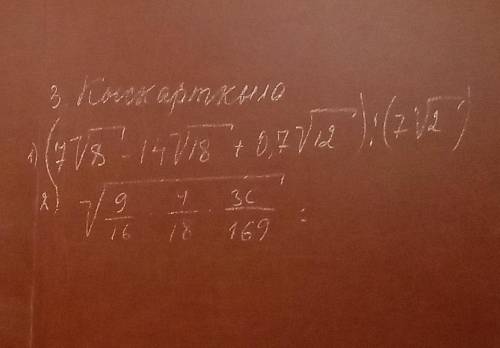 3. Кыскарткыла
1) (7√8 - 14√18 + 0,7√12) : (7√2)
2) √(9/16 · 4/18 · 36/169) =